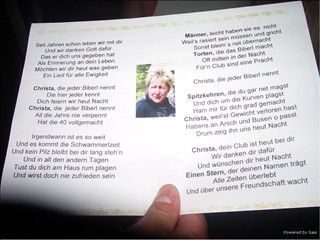 Seit Jahren schon leben wir mit dir
Und wir danken Gott dafür
Das er dich uns gegeben hat
Als Erinnerung an dein Leben,
Möchten wir dir heut was geben
Ein Lied für alle Ewigkeit
Christa, die jeder Biberl nennt
Die hier jeder kennt
Dich feiern wir heut Nacht
Christa, die jeder Biberl nennt
All die Jahre nie verpennt
Hat die 40 vollgemacht
Irgendwann ist es so weit
Und es kommt die Schwammerlzeit
Und kein Pilz bleibt bei dir lang steh'n
Und in all den andern Tagen
Tust du dich am Haus rum plagen
Und wirst doch nie zufrieden sein
Männer, leicht haben sie es nicht
Weil's rasiert sein müssen und gricht
Sonst bleim's net übernacht
Torten, die das Biberl macht
Oft mitten in der Nacht
Für'n Club sind eine Pracht
Christa, die jeder Biberl nennt
Spitzkehren, die du gar net magst
Und dich um die Kurven plagst
Ham mir für dich grad gemacht
Christa, weil'st Gewicht verloren hast
Habens an Arsch und Busen o passt
Drum zeig ihn uns heut Nacht
Christa, dein Club ist heut bei dir
Wir danken dir dafür
Und wünschen dir heut Nacht
Einen Stern, der deinen Namen trägt
Alle Zeiten überlebt
Und über unsere Freundschaft wacht
Powered by Gasi